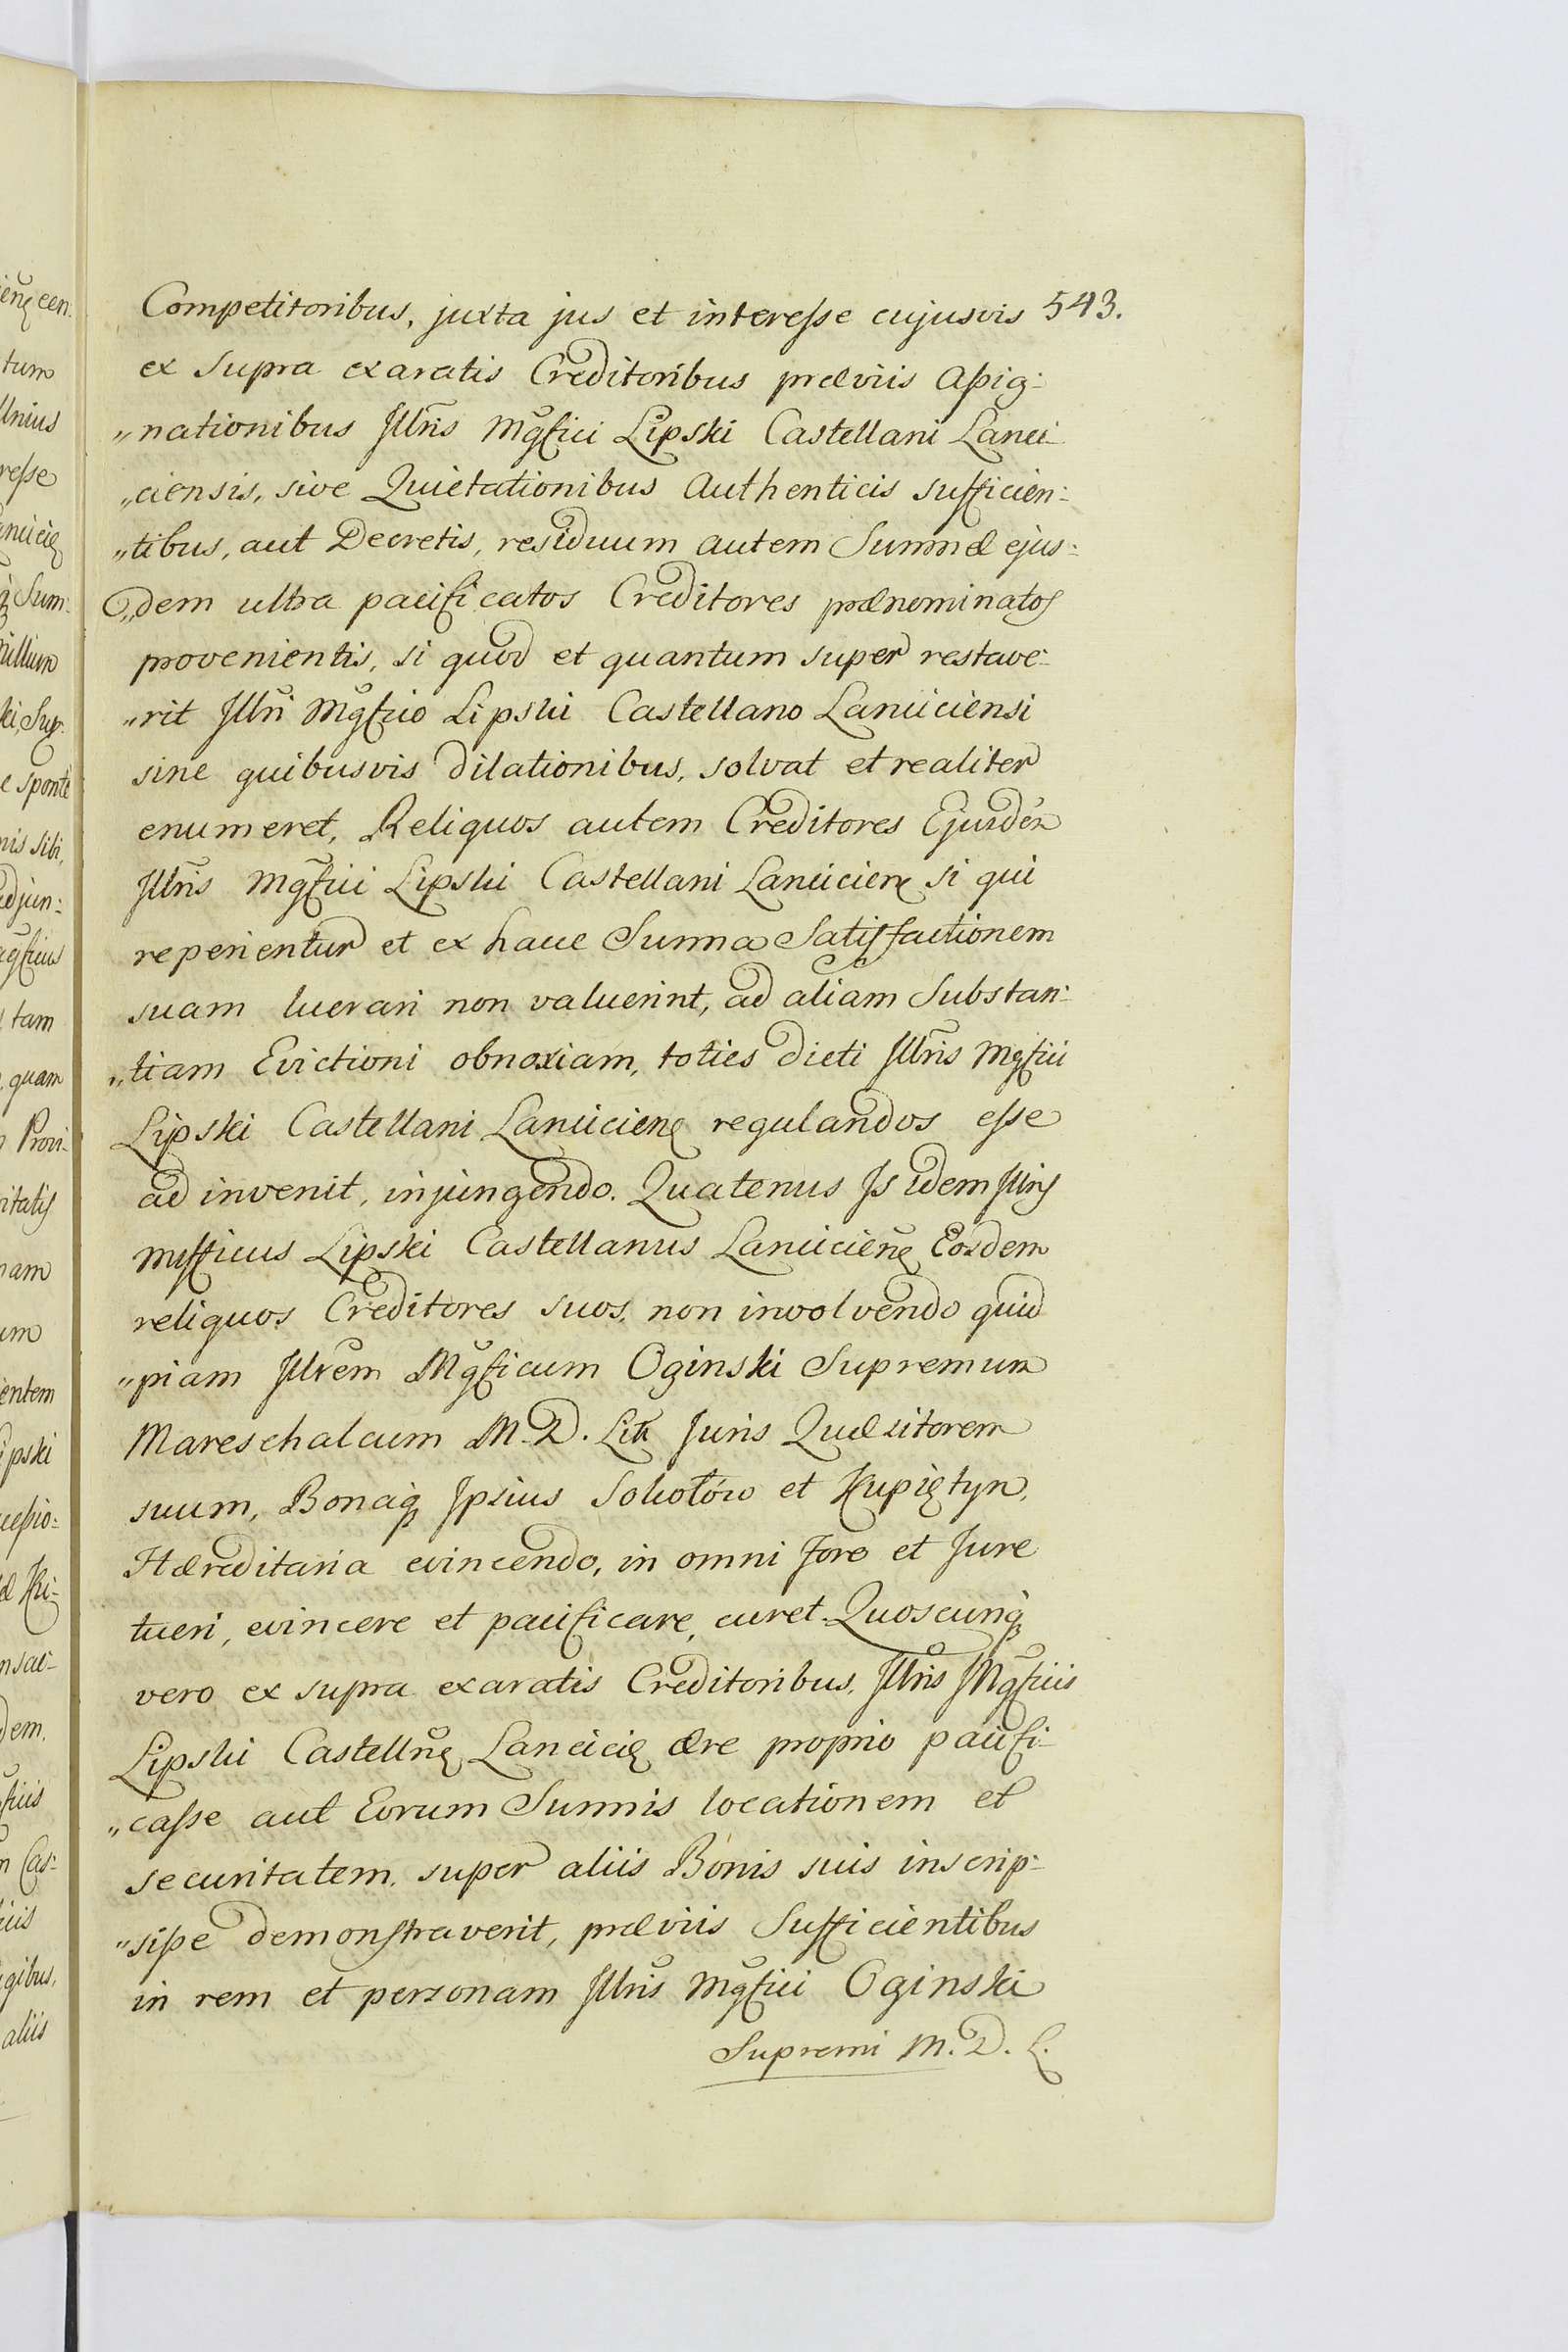 543.
Competitoribus, juxta jus et interesse cujusvis
ex supra exaratis Creditoribus præviis Assig:
„nationibus Jllris Mgfici Lipski Castellani Lanci
„ciensis, sive Quietationibus Authenticis sufficien:
„tibus, aut Decretis, residuum autem Summæ ejus:
„dem ultra pacificatos Creditores prænominatos
provenientis, si quod et quantum super restave:
„rit Jllri Mgfico Lipski Castellano Lanciciensi
sine quibusvis dilationibus, solvat et realiter
enumeret, Reliquos autem Creditores Ejusdem
Jllris Mgfici Lipski Castellani Lancicien si qui
reperientur et ex hacce Summa Satisfactionem
suam lucrari non valuerint, ad aliam Substan:
„tiam Evictioni obnoxiam, toties dicti Jllris Mgfici
Lipski Castellani Lancicien regulandos esse
ad invenit, injungendo. Quatenus Js idem Jllris
Mfficus Lipski Castellanus Lancicien Eosdem
reliquos Creditores suos, non involvendo quid
„piam Jllrem Mgficum Oginski Supremum
Mareschalcum M. D. Litt Juris Quæsitorem
suum, Bonaq Jpsius Sokołów et Kupiętyn,
Hæreditaria evincendo, in omni foro et Jure
tueri, evincere et pacificare, curet. Quoscunq
vero ex supra exaratis Creditoribus, Jllris Mgficus
Lipski Castelln Lancici ære proprio pacifi:
„casse aut Eorum Summis locationem et
securitatem, super aliis Bonis suis inscrip:
„sisse demonstraverit, præviis Sufficientibus
in rem et personam Jllris Mgfici Oginski
Supremi M. D. L.